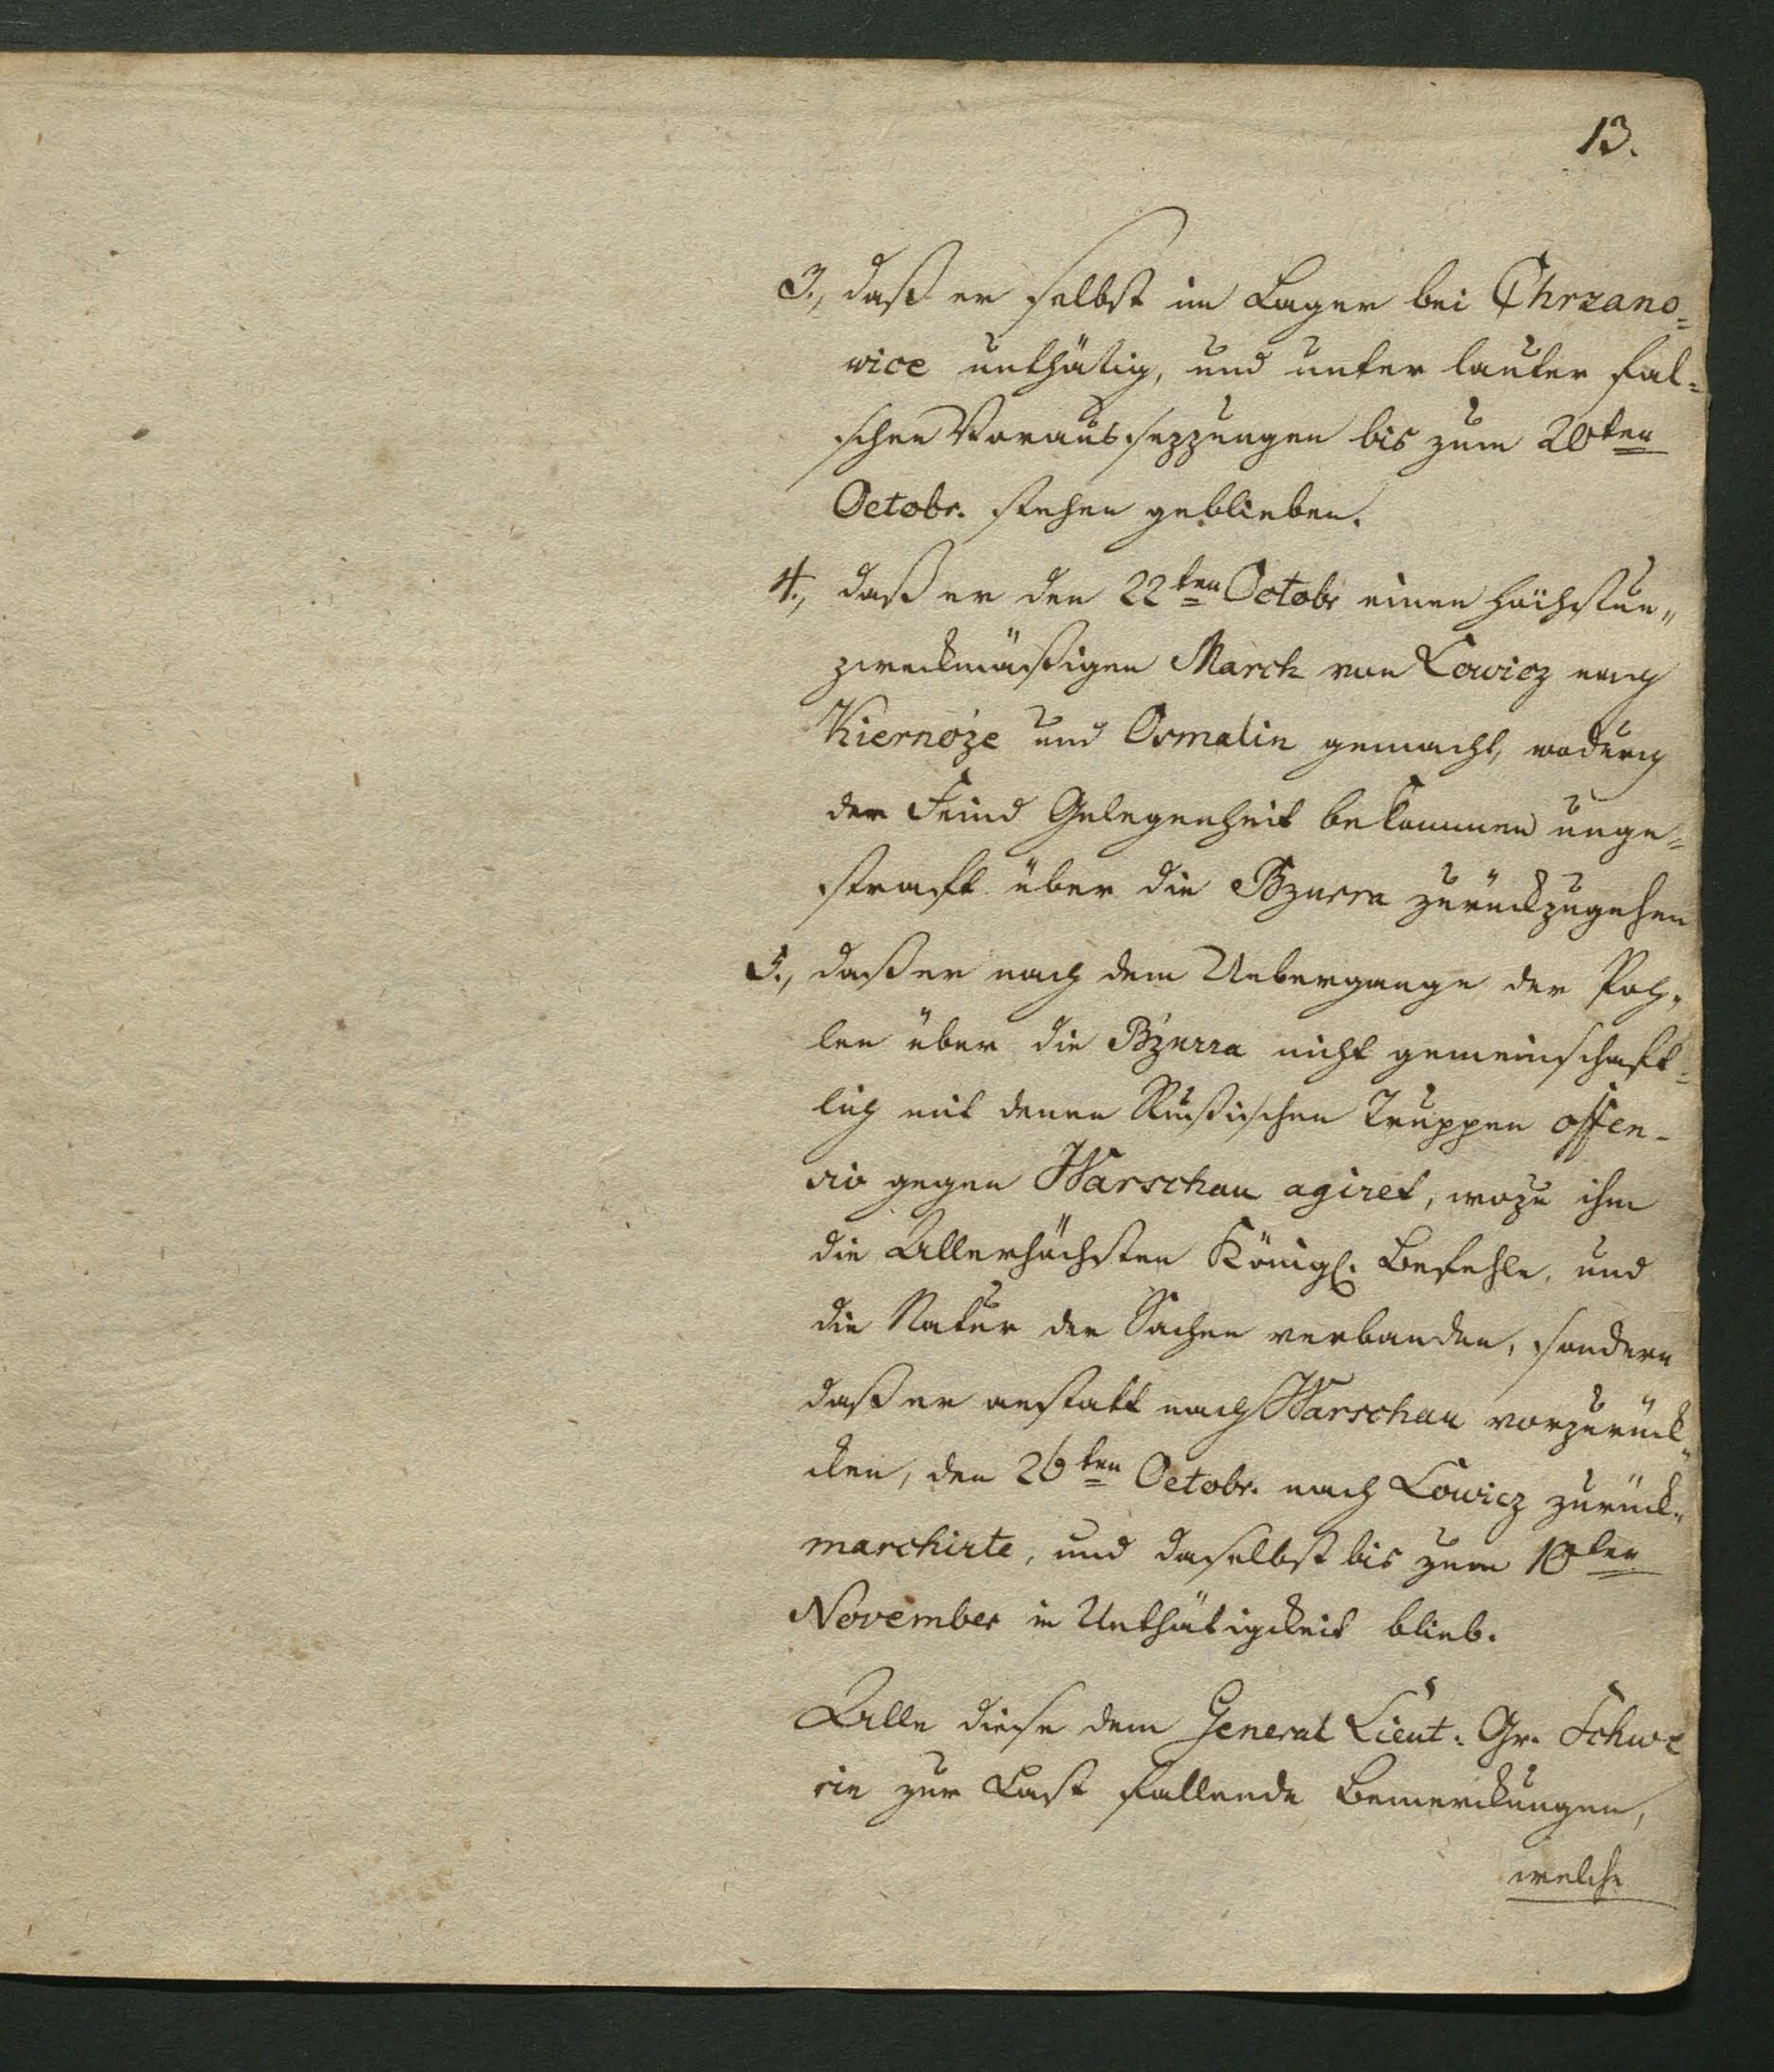 13.
3., daß er selbst im Lager bei Chrzano=
wice unthätig, und unter lauter fal=
schen Voraussezzungen bis zum 20ten
Octobr. stehen geblieben.
4., daß er den 22ten Octobr einen höchstun„
zweckmäßigen March von Lowicz nach
Kiernoze und Osmalin gemacht, wodurch
der Feind Gelegenheit bekommen unge=
straft über die Bzurra zurückzugehen
5., daß er nach dem Uebergange der Poh„
len über die Bzurra nicht gemeinschaft=
lich mit denen Rußischen Truppen offen-
siv gegen Warschau agiret, wozu ihn
die Allerhöchsten Königl. Befehle, und
die Natur der Sachen verbanden, sondern
daß er anstatt nach Warschau vorzurück„
cken, den 26ten Octobr. nach Lowicz zurück„
marchirte, und daselbst bis zum 10ten
November in Unthätigckeit blieb.
Alle diese dem General Lieut: Gr. Schwe
rin zur Last fallende Bemerckungen,
welche